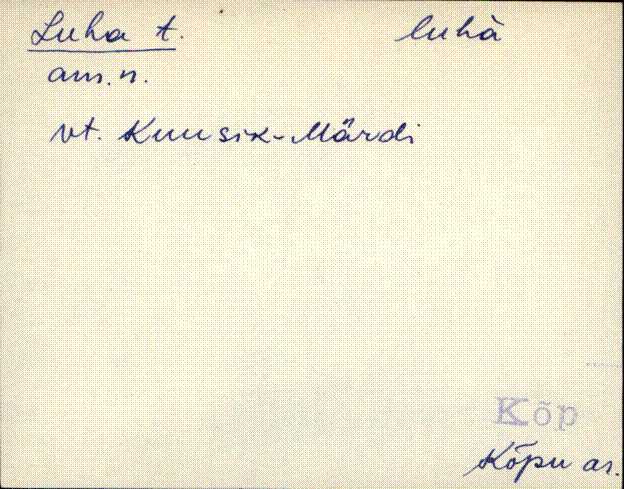 Luha t. luhà
am.n.
vt. Kuusik-Märdi
Kõp
Kõpu as.